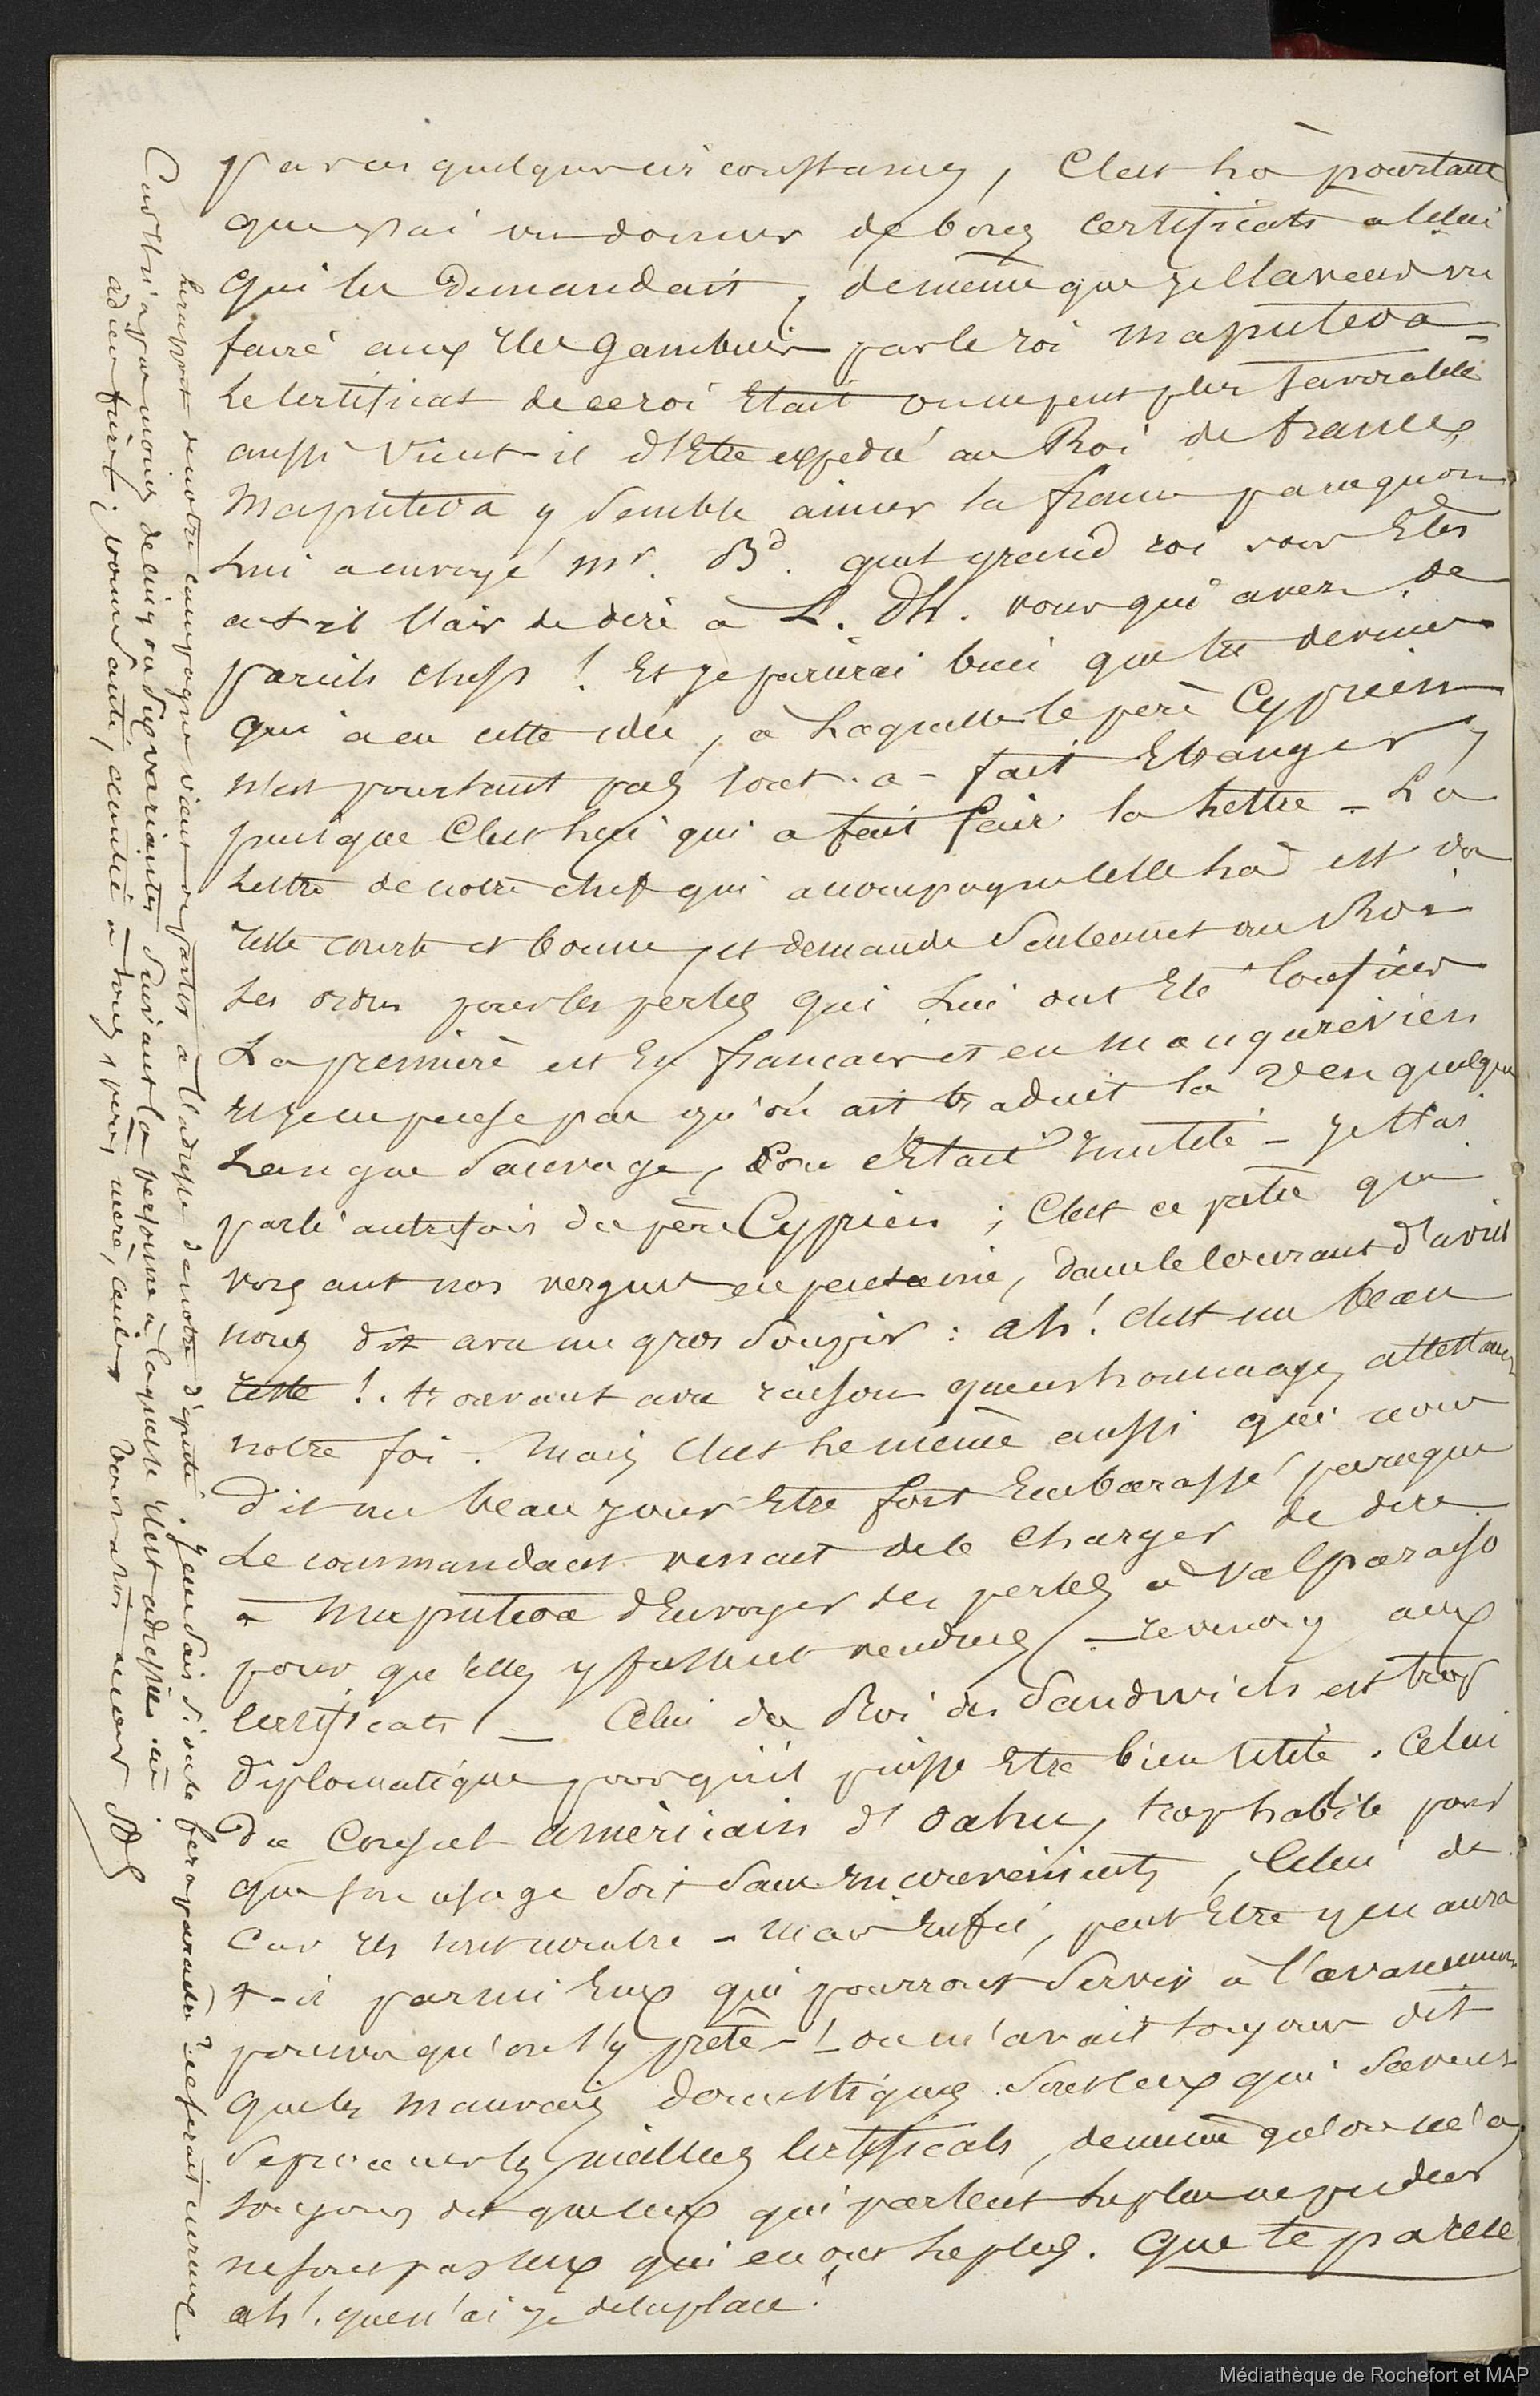 par ces quelques circonstances, C'est là pourtant
que j'ai vu donner de bons certificats a celui
qui les demandait, de même que je l'avais vu
faire aux Iles Gambier par le roi maputeoa -
Le Certificat de ce roi Etait on ne peut plus favorable
aussi vient-il d'Etre expedié au Roi de france,
Maputeoa y semble aimer la france parcequ'on
Lui a envoyé Mr. Bd. quel grand roi vous Etes
a t-il l'air de dire à L. Ph. vous qui avez de
pareils chefs ! Et je parierai bien que
qui a eu cette idée, a Laquelle le père Cyprien
n'est pourtant pas tout-a-fait Etranger,
puisque C'est lui qui a fait faire la Lettre - La
Lettre de notre chef qui accompagne celle là est du
reste courte et bonne, et demande seulement au Roi
ses ordres pour les perles qui Lui ont Eté Confiées
La premiere est En francais et en mangarevien
Et je ne pense pas qu'on ait traduit la
Langue sauvage, C'Etait inutile - je t'ai
parlé autrefois du père Cyprien ; C'est ce prêtre qui
voyant nos vergues en pantenne, dans le Courant d'avril
nous dit avec un gros soupir : ah ! C'est un beau
reste ! trouvant avec raison que ces hommages attestaient
notre foi. Mais C'est le même aussi qui nous
dit un beau jour Etre fort Embarassé parceque
Le commandant venait de le Charger de dire
à Maputeoa d'Envoyer des perles à Valparaiso
pour qu'elles y fussent vendues - revenons aux
certificats ! - Celui du Roi des Sandwich est trop
diplomatique pour qu'il puisse Etre bien utile. Celui
du Consul américain d'Oahu, trop habile pour
que son usage soit sans inconvenients, Celui de
Car Ils sont nombre - Mais Enfin, peut Etre y en aura
t-il parmi Eux qui pourront servir à l'avancement
pourvu qu'on s'y prête - ! on m'avait toujours dit
que les mauvais domestiques sont ceux qui savent
se procurer les meilleurs Certificats, de même qu'on m'a
toujours dit que ceux qui parlent le plus de pudeur
ne sont pas ceux qui en ont le plus. Que te parle
ah ! que n'ai je de la place !
de notre campagne vient de partir à l'adresse de notre député. j'en sais si on le fera paraitre, il serait curieux
Car Il n'a pas moins de cinq ou six variantes suivant la personne à laquelle C'est adressée ici
adieu frère ; bonne santé, amitié à tous, père, mère, Emile, Bonsoir encore